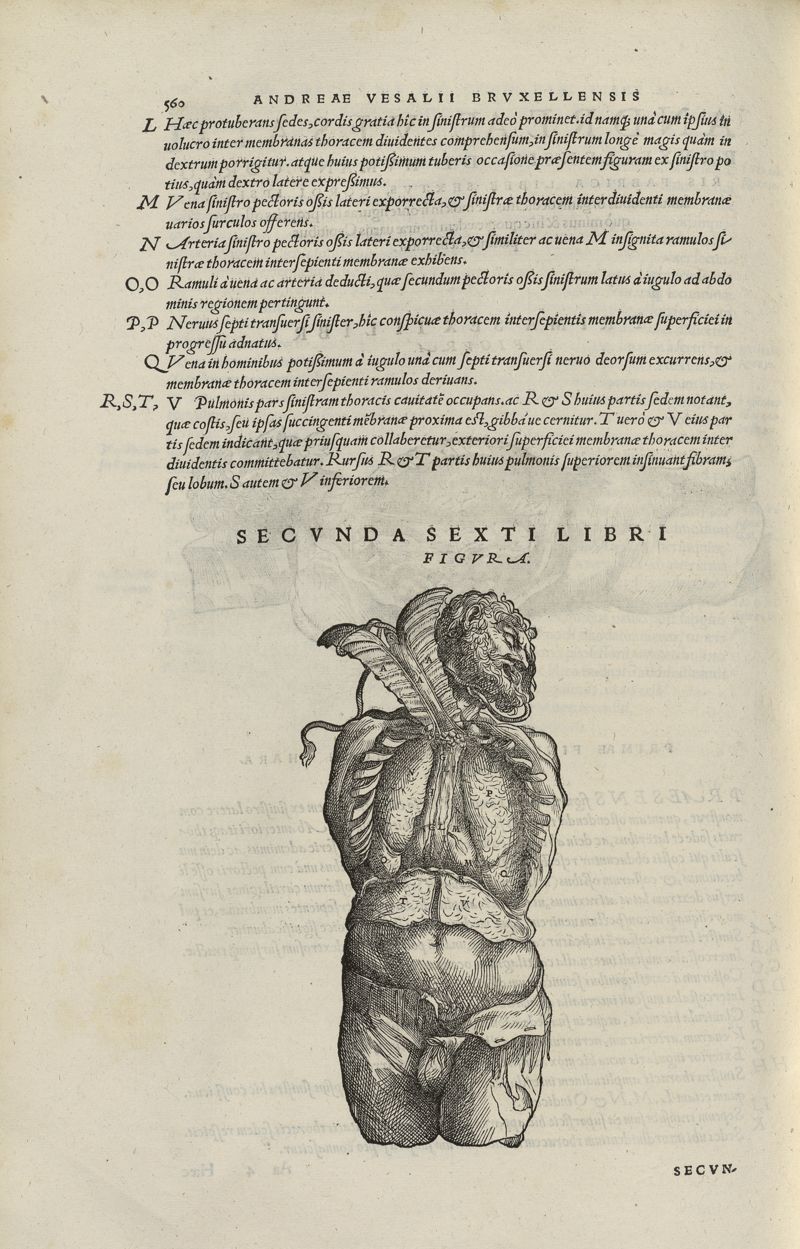 560 ANDREAE VESALII BRVXELLENSIS
L Hæc protuberans sedes, cordis gratia hic in sinistrum adeò prominet. id namq; unà cum ipsius in
uolucro inter membranas thoracem diuidentes comprehensum, in sinistrum longè magis quàm in
dextrum porrigitur. atque huius potißimùm tuberis occasione præsentem figuram ex sinistro po
tius, quàm dextro latere expreßimus.
M Vena sinistro pectoris oßis lateri exporrecta, & sinistræ thoracem interdiuidenti membranæ
uarios surculos offerens.
N Arteria sinistro pectoris oßis lateri exporrecta, & similiter ac uena M insignita ramulos si-
nistræ thoracem intersepienti membranæ exhibens.
O, O Ramuli à uena ac arteria deducti, quæ secundum pectoris oßis sinistrum latus à iugulo ad abdo
minis regionem pertingunt.
P, P Neruus septi transuersi sinister, hic conspicuæ thoracem intersepientis membranæ superficiei in
progressu adnatus.
Q Vena in hominibus potißimum à iugulo unà cum septi transuersi neruo deorsum excurrens, &
membranæ thoracem intersepienti ramulos deriuans.
R, S, T, V Pulmonis pars sinistram thoracis cauitatē occupans. ac R & S huius partis sedem notant,
quæ costis, seu ipsas succingenti mēbranæ proxima est, gibbáue cernitur. T uerò & V eius par
tis sedem indicant, quæ priusquam collaberetur, exteriori superficiei membranæ thoracem inter
diuidentis committebatur. Rursus R & T partis huius pulmonis superiorem insinuant fibram,
seu lobum. S autem & V inferiorem.
SECVNDA SEXTI LIBRI
FIGVRA.
A
A
A
P
L
M
M
O
Q
R
T
V
SECVN-